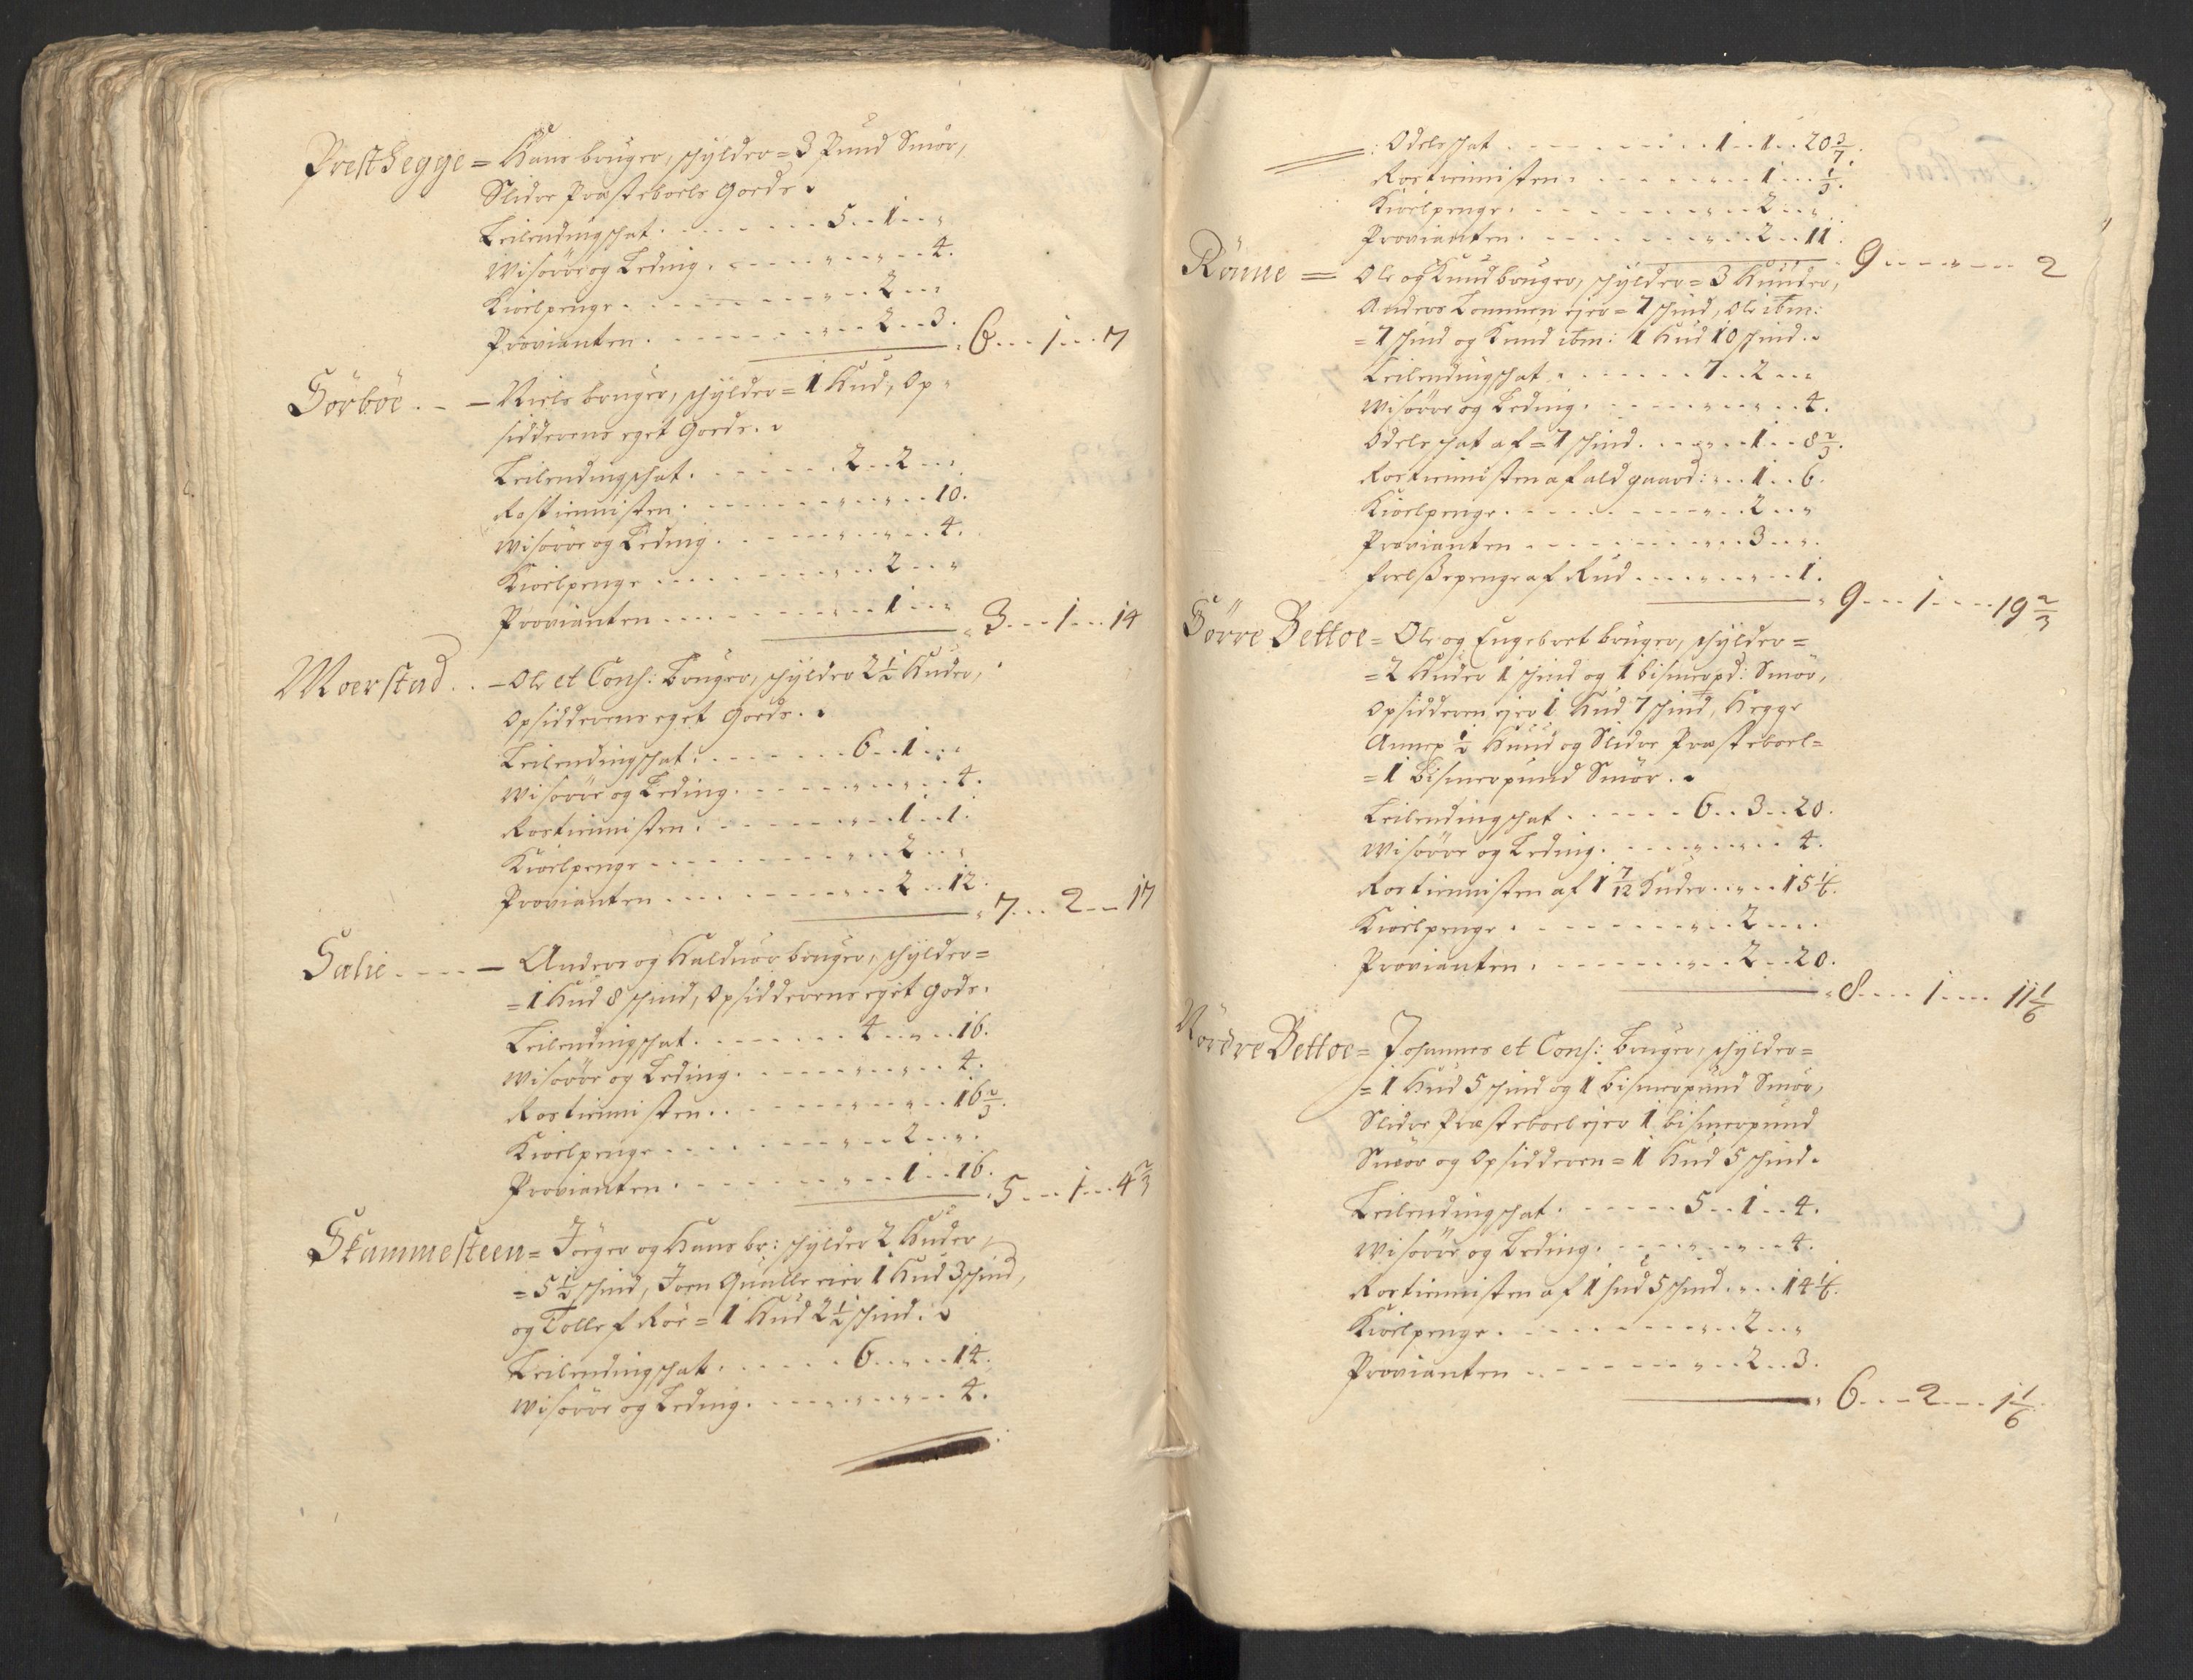 Presthegge = Hans bruger, schylder = 3 Pund Smör,
Slidre Præsteboels Goeds.
Leilendingschat . . . 5 . . 1 . . "
Wisöre og Leding . . . " . . " . . 4.
Kiöelpenge . . . " . . 2 . . "
Provianten . . . " . . 2 . . 3.
6 . . . 1 . . . 7
Sörböe . . — Niels bruger, schylder = 1 Hud, Op-
sidderens eget Goeds.
Leilendingschat . . . 2 . . 2 . . "
Rostienisten . . . " . . " . . 10.
Wisöre og Leding . . . " . . " . . 4.
Kiöelpenge . . . " . . 2 . . "
Provianten . . . " . . 1 . . "
3 . . . 1 . . . 14
Moerstad . . — Ole et Cons: Bruger, schylder 2 1/2 Huder,
Opsidderens eget Goeds.
Leilendingschat . . . 6 . . 1 . . "
Wisöre og Leding . . . " . . " . . 4.
Rostienisten . . . " . . 1 . . 1.
Kiöelpenge . . . " . . 2 . . "
Provianten . . . " . . 2 . . 12.
7 . . . 2 . . . 17
Sælie . . . — Anders og Halduor bruger, schylder =
= 1 Hud 8 schind, Opsidderens eget Gods.
Leilendingschat . . . 4 . . " . . 16.
Wisöre og Leding . . . " . . " . . 4.
Rostienisten . . . " . . " . . 16 2/3.
Kiöelpenge . . . " . . 2 . . ".
Provianten . . . " . . 1 . . 16.
5 . . . 1 . . . 4 2/3
Skammesteen = Jörger og Hans br: schylder 2 Huder,
= 5 1/2 schind, Joen Qualle eier 1 Hud 3 schind,
og Tollef Röe = 1 Hud 2 1/2 schind.
Leilendingschat . . . 6 . . " . . 14.
Wisöre og Leding . . . " . . " . . 4.
Odelsschat . . . 1 . . 1 . . 20 3/7.
Rostienisten . . . " . . 1 . . 1/3.
Kiöelpenge . . . " . . 2 . . "
Provianten . . . " . . 2 . . 11.
9 . . . " . . . 2
Rönne = Ole og Knud bruger, schylder = 3 Huuder,
Anders Lommen ejer = 7 schind, Ole ibm:
= 7 schind og Knud ibm: 1 Hud 10 schind.
Leilendingschat . . . 7 . . 2 . . "
Wisöre og Leding . . . " . . " . . 4.
Odelsschat af = 7 schind . . . " . . 1 . . 8 2/3.
Rostienisten af ald gaard: " . . 1 . . 6.
Kiöelpenge . . . " . . 2 . . "
Provianten . . . " . . 3 . . ".
forlßepenge af Rud . . . " . . " . . 1.
9 . . . 1 . . . 19 2/3
Sörre Bettoe = Ole og Engebret bruger, schylder =
= 2 Huder 1 schind og 1 bismerpd: Smör,
Opsidderen ejer 1 Hud 7 schind, Hegge
Annex 1/2 Huud og Slidre Præsteboel =
= 1 Bismerpund Smör.
Leilendingschat . . . 6 . . 3 . . 20.
Wisöre og Leding . . . " . . " . . 4.
Rostienisten af 1 7/12 Huder . . " . . 15 1/6.
Kiöelpenge . . . " . . 2 . . .
Provianten . . . " . . 2 . . 20.
8 . . . 1 . . . 11 1/6
Nördre Bettoe = Johannes et Cons: Bruger, schylder =
= 1 Hud 5 schind og 1 Bismerpund Smör,
Slidre Præsteboel ejer 1 bismerpund
Smör og Opsidderen = 1 Hud 5 schind.
Leilendingschat . . . 5 . . 1 . . 4.
Wisöre og Leding . . . " . . " . . 4.
Rostienisten af 1 hud 5 schind . " . . 14 1/6.
Kiöelpenge . . . " . . 2 . . "
Provianten . . . " . . 2 . . 3.
6 . . . 2 . . . 1 1/6